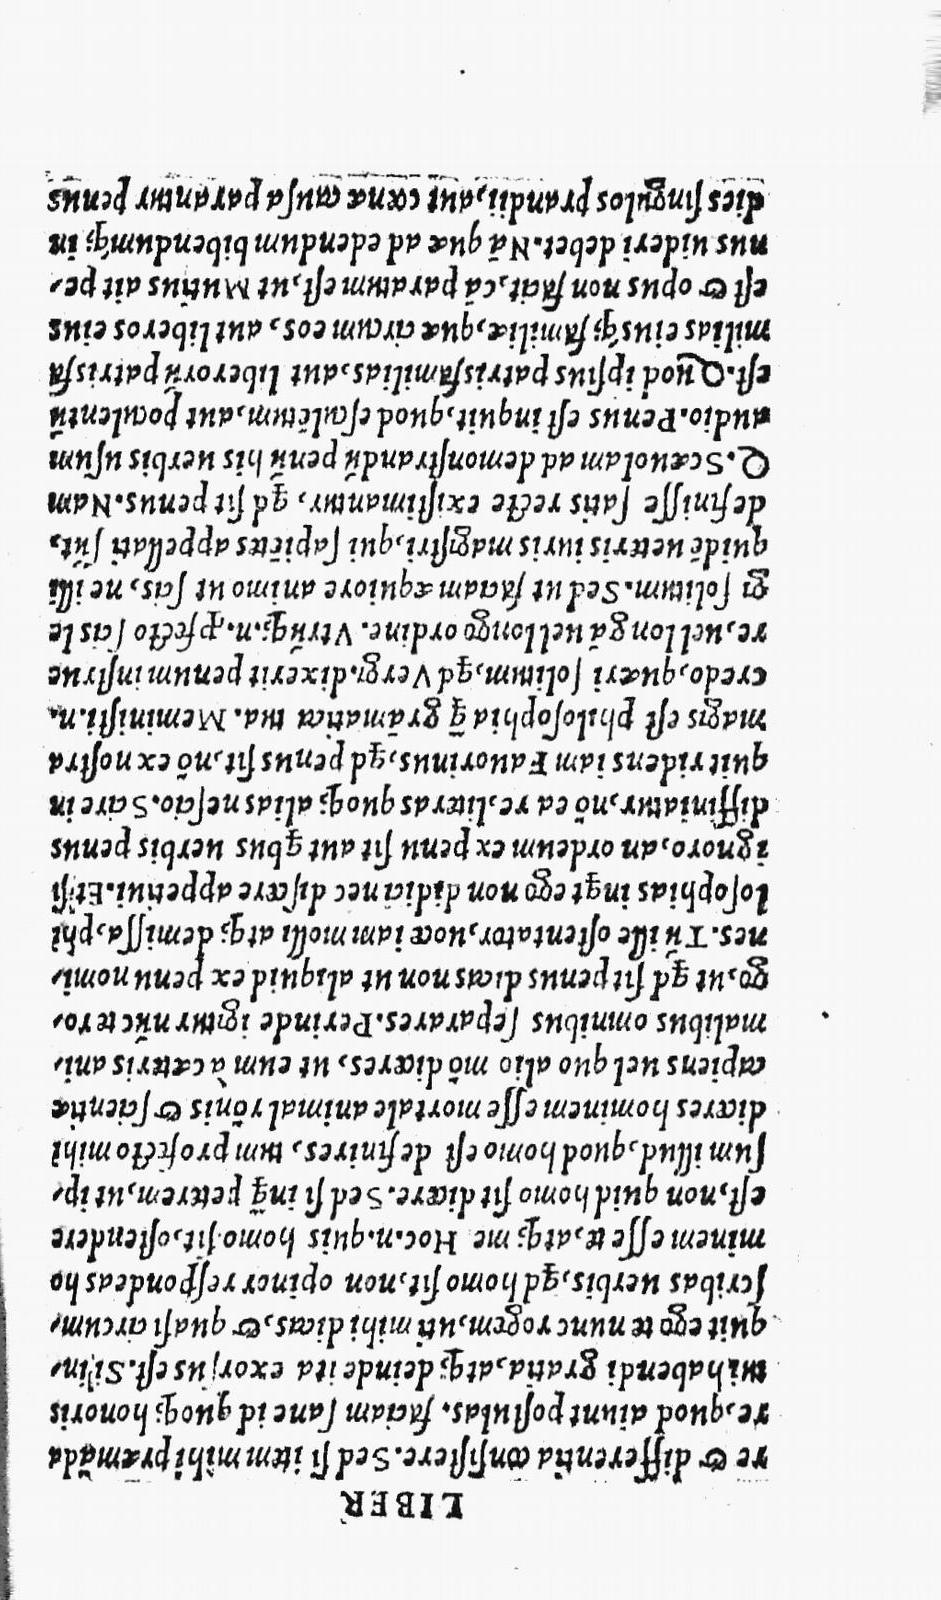 LIBER
re & differentia consistere. Sed si itẽ mihi præmãda
re, quod aiunt postulas. faciam sane id quoq; honoris
tui habendi gratia, atq; deinde ita exorsus est. Si, in-
quit ego te nunc rogem, uti mihi dicas, & quasi circum-
scribas uerbis, qd homo sit, non opinor respondeas ho
minem esse te, atq; me. Hoc .n. quis homo sit, ostendere
est, non quid homo sit dicere. Sed si inq̃ peterem, ut ip-
sum illud, quod homo est definires, tum profecto mihi
diceres hominem esse mortale animal rõnis & scientiæ
capiens uel quo alio mõ diceres, ut eum à cæteris ani-
malibus omnibus separares. Perinde igitur nũc te ro-
go, ut qd sit penus dicas non ut aliquid ex penu nomi-
nes. Tũ ille ostentator, uoce iam molli atq; demissa, phi
losophias inqt ego non didici nec discere appetiui. Et si
ignoro, an ordeum ex penu sit aut qbus uerbis penus
diffiniatur, nõ ea re, literas quoq; alias nescio. Scire in
quit ridens iam Fauorinus, qd penus sit, nõ ex nostra
magis est philosophia q̃ grãmatica tua. Meministi .n.
credo, quæri solitum, qd Verg. dixerit penum instrue
re, uel longã uel longo ordine. Vtrũq; .n. ꝓfecto scis le
gi solitum. Sed ut faciam æquiore animo ut scis, ne illi
quidẽ ueteris iuris magistri, qui sapiẽtes appellati sũt,
definisse satis recte existimantur, qd sit penus. Nam
Q. Scæuolam ad demonstrandũ penũ his uerbis usum
audio. Penus est inquit, quod esculẽtum, aut poculentũ
est. Quod ipsius patrisfamilias, aut liberorũ patrisfa
milias eiusq; familiæ, quæ circum eos, aut liberos eius
est & opus non facit, cã paratum est, ut Mutius ait pe-
nus uideri debet. Nã quæ ad edendum bibendumq; in
dies singulos prandii, aut cœnæ causa parantur penus